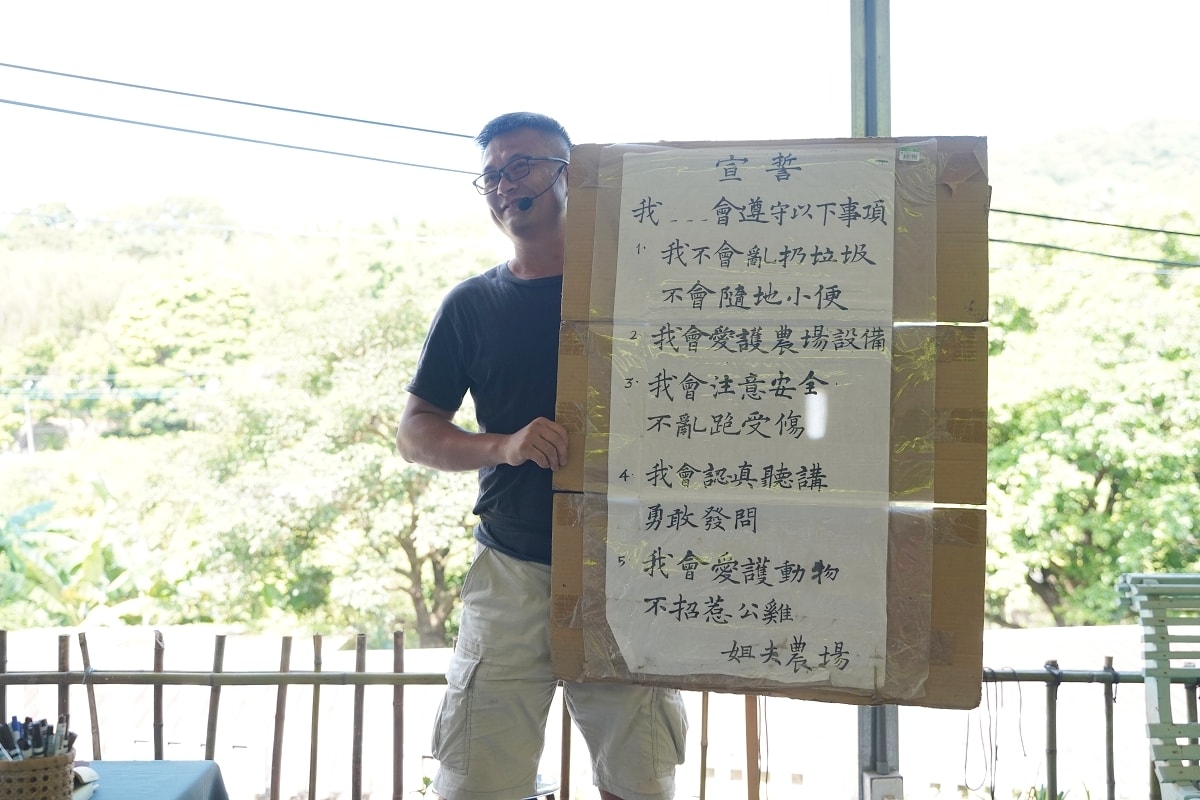 宣誓
我 ___會遵守以下事項
1. 我不會亂扔垃圾
不會隨地小便
2. 我會愛護農場設備
3. 我會注意安全.
不亂跑受傷
4. 我會認真聽講
勇敢發問
5 我會愛護動物
不招惹公雞
姐夫農場